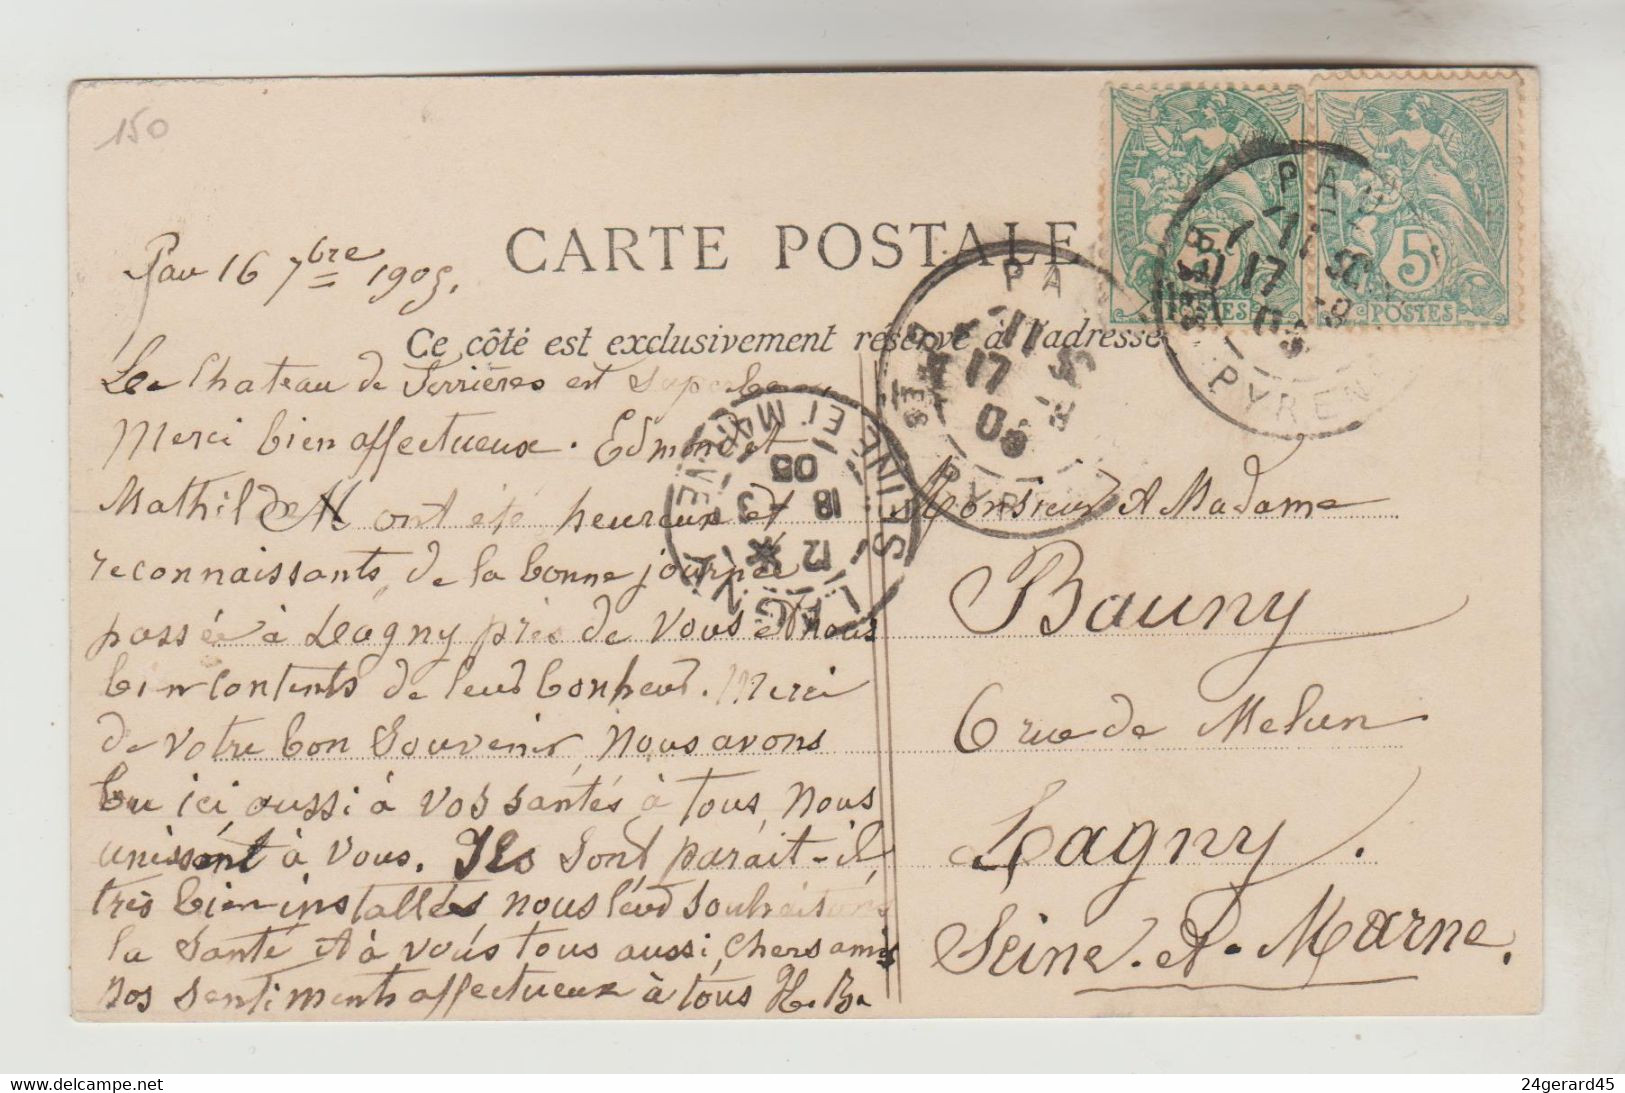 150
CARTE POSTALE
Ce côté est exclusivement réservé à l'adresse
Pau 16 7bre 1905.
Le Chateau de Ferrières est Superbe,
Merci bien affectueux. Edmond et
Mathilde ont été heureux et
reconnaissants, de la bonne journée
passée à Lagny près de Vous et nous
bien contents de leur bonheur. Merci
de votre bon Souvenir, Nous avons
bu ici aussi à vos santés à tous, nous
unissant à vous. Ils sont parait-il
très bien installés nous leur souhaitons
la Santé et à vous tous aussi, Chers amis
nos sentiments affectueux à tous H. B.
Monsieur et Madame
Bauny
6 rue de Melun
Lagny.
Seine-et-Marne.
5
POSTES
5c
POSTES
PAU
17
05
PYRENEES
PAU
17
05
LAGNY
12
18
05
SEINE ET MARNE
24gerard45
www.delcampe.net